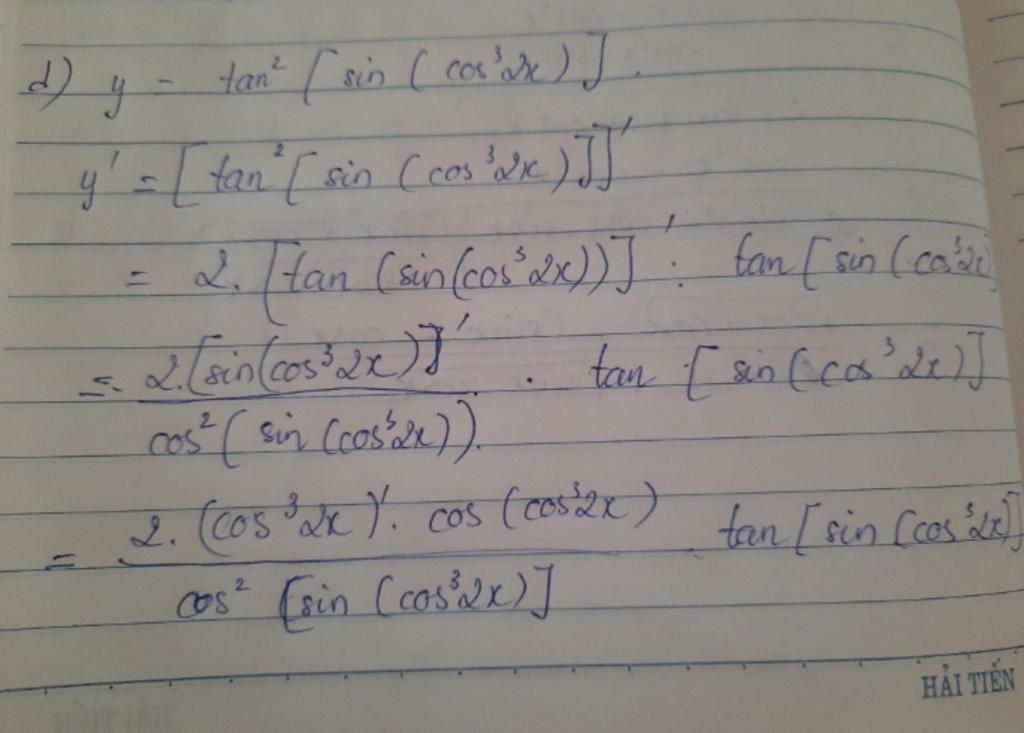 d) y = tan² [ sin ( cos³2x ) ] .
y' = [ tan² [ sin ( cos³2x ) ] ]'
= 2. [ tan ( sin(cos³2x) ) ]' . tan [ sin ( cos³2x
= 2.[sin(cos³2x)]' / cos² ( sin (cos³2x)). . tan [ sin ( cos³2x ) ]
= 2. (cos³2x)'. cos (cos³2x) / cos² [sin (cos³2x)] . tan [ sin (cos³2x) ]
HẢI TIẾN